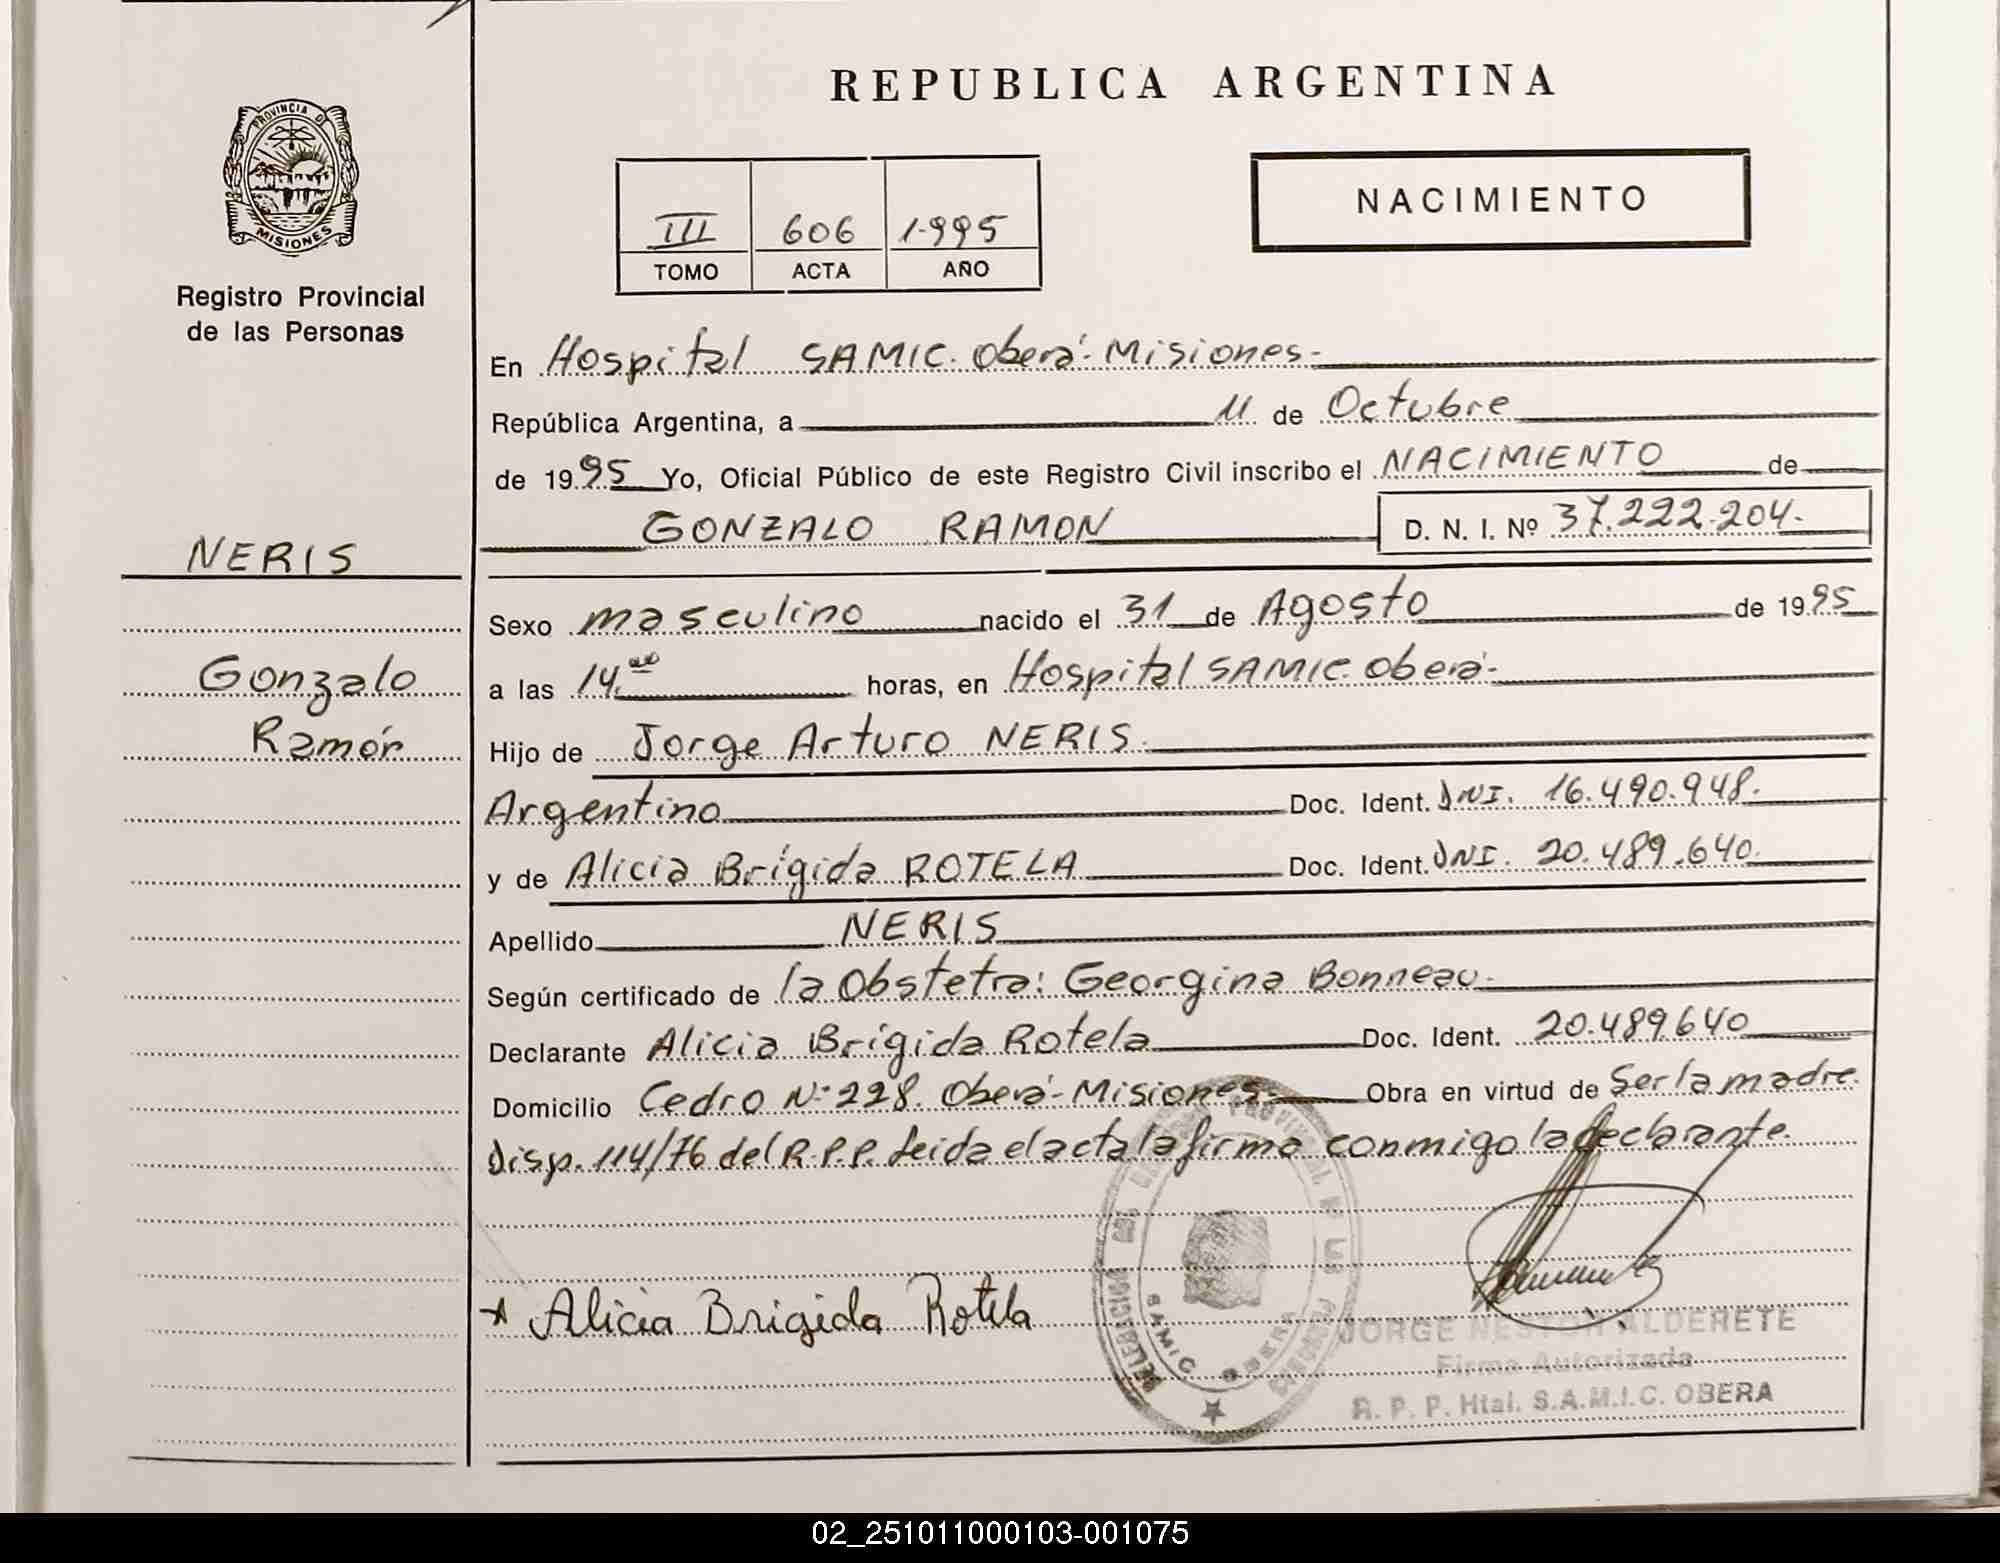 REPUBLICA ARGENTINA
PROVINCIA DE
MISIONES
Registro Provincial
de las Personas
III 606 1.995
TOMO ACTA AÑO
NACIMIENTO
En Hospital SAMIC. Oberá-Misiones-
República Argentina, a 11 de Octubre
de 1995 Yo, Oficial Público de este Registro Civil inscribo el NACIMIENTO de
GONZALO RAMON D. N. I. Nº 37.222.204.
NERIS
Gonzalo
Ramón
Sexo masculino nacido el 31 de Agosto de 1995
a las 14.00 horas, en Hospital SAMIC. Oberá-
Hijo de Jorge Arturo NERIS.
Argentino Doc. Ident. DNI. 16.490.948.
y de Alicia Brígida ROTELA Doc. Ident. DNI. 20.489.640.
Apellido NERIS
Según certificado de la Obstetra: Georgina Bonneau.
Declarante Alicia Brígida Rotela Doc. Ident. 20.489.640
Domicilio Cedro Nº 228. Oberá-Misiones- Obra en virtud de Ser la madre.
Disp. 114/76 del R.P.P. Leida el acta la firma conmigo la declarante.
* Alicia Brigida Rotela
SAMIC OBERA
JORGE NESTOR ALDERETE
Firma Autorizada
R. P. P. Htal. S.A.M.I.C. OBERA
02_251011000103-001075